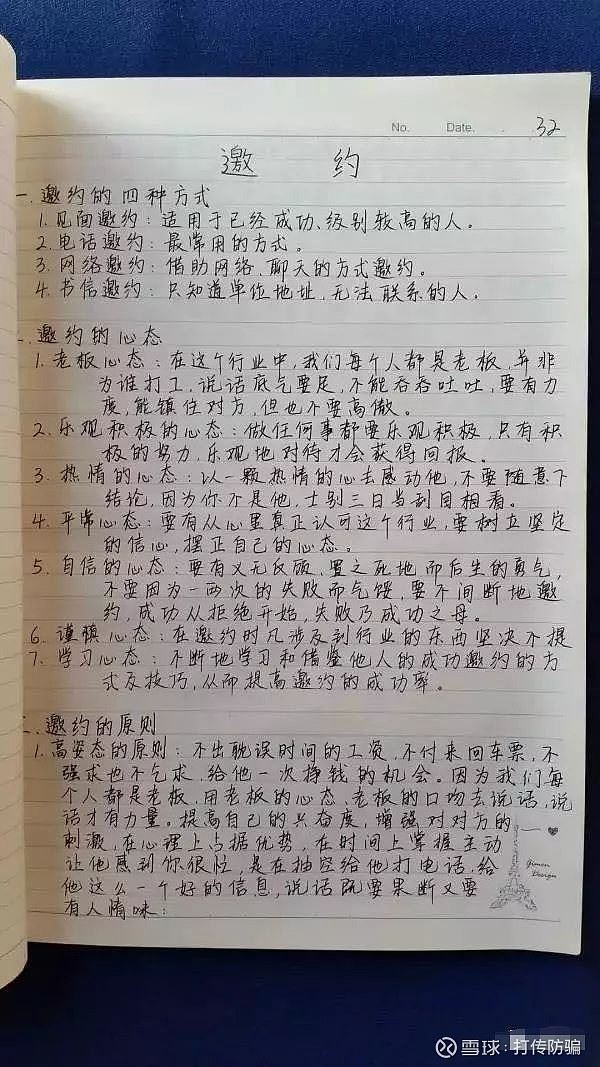 No. Date. 32
邀约
一.邀约的四种方式
1.见面邀约:适用于已经成功、级别较高的人。
2.电话邀约:最常用的方式。
3.网络邀约:借助网络、聊天的方式邀约。
4.书信邀约:只知道单位地址,无法联系的人.
二.邀约的心态
1.老板心态:在这个行业中,我们每个人都是老板,并非
为谁打工,说话底气要足,不能吞吞吐吐,要有力
度,能镇住对方,但也不要高傲。
2.乐观积极的心态:做任何事都要乐观积极,只有积
极的努力,乐观地对待才会获得回报。
3.热情的心态:以一颗热情的心去感动他,不要随意下
结论,因为你不是他,士别三日当刮目相看。
4.平常心态:要有从心里真正认可这个行业,要树立坚定
的信心,摆正自己的心态。
5.自信的心态:要有义无反顾、置之死地而后生的勇气,
不要因为一两次的失败而气馁,要不间断地邀
约,成功从拒绝开始,失败乃成功之母。
6.谨慎心态:在邀约时凡涉及到行业的东西坚决不提
7.学习心态:不断地学习和借鉴他人的成功邀约的方
式及技巧,从而提高邀约的成功率。
三.邀约的原则
1.高姿态的原则:不出耽误时间的工资,不付来回车票,不
强求也不乞求,给他一次挣钱的机会。因为我们每
个人都是老板,用老板的心态、老板的口吻去说话,说
话才有力量。提高自己的兴奋度,增强对对方的
刺激,在心理上占据优势,在时间上掌握主动
让他感到你很忙,是在抽空给他打电话,给
他这么一个好的信息,说话既要果断又要
有人情味:
Design
雪球:打传防骗